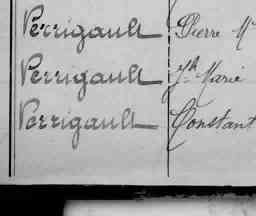 Perrigault Pierre M
Perrigault Jh Marie
Perrigault Constant